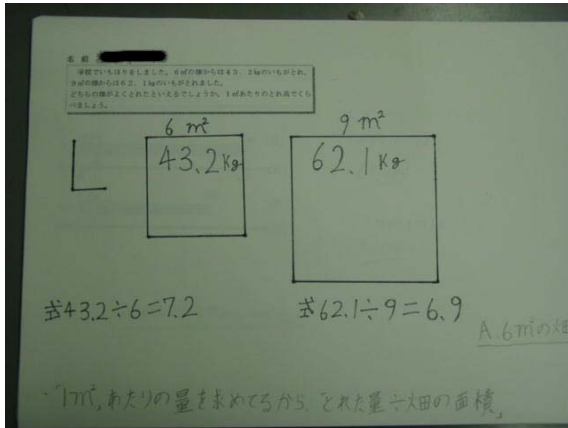 名前
学校でいもほりをしました。6㎡の畑からは43.2kgのいもがとれ、
9㎡の畑からは62.1kgのいもがとれました。
どちらの畑がよくとれたといえるでしょうか。1㎡あたりのとれ高でくら
べましょう。
6 m²
9 m²
43.2kg
62.1kg
式43.2÷6=7.2
式62.1÷9=6.9
A.6m²の畑
「1m²あたりの量を求めてるから、とれた量÷畑の面積」